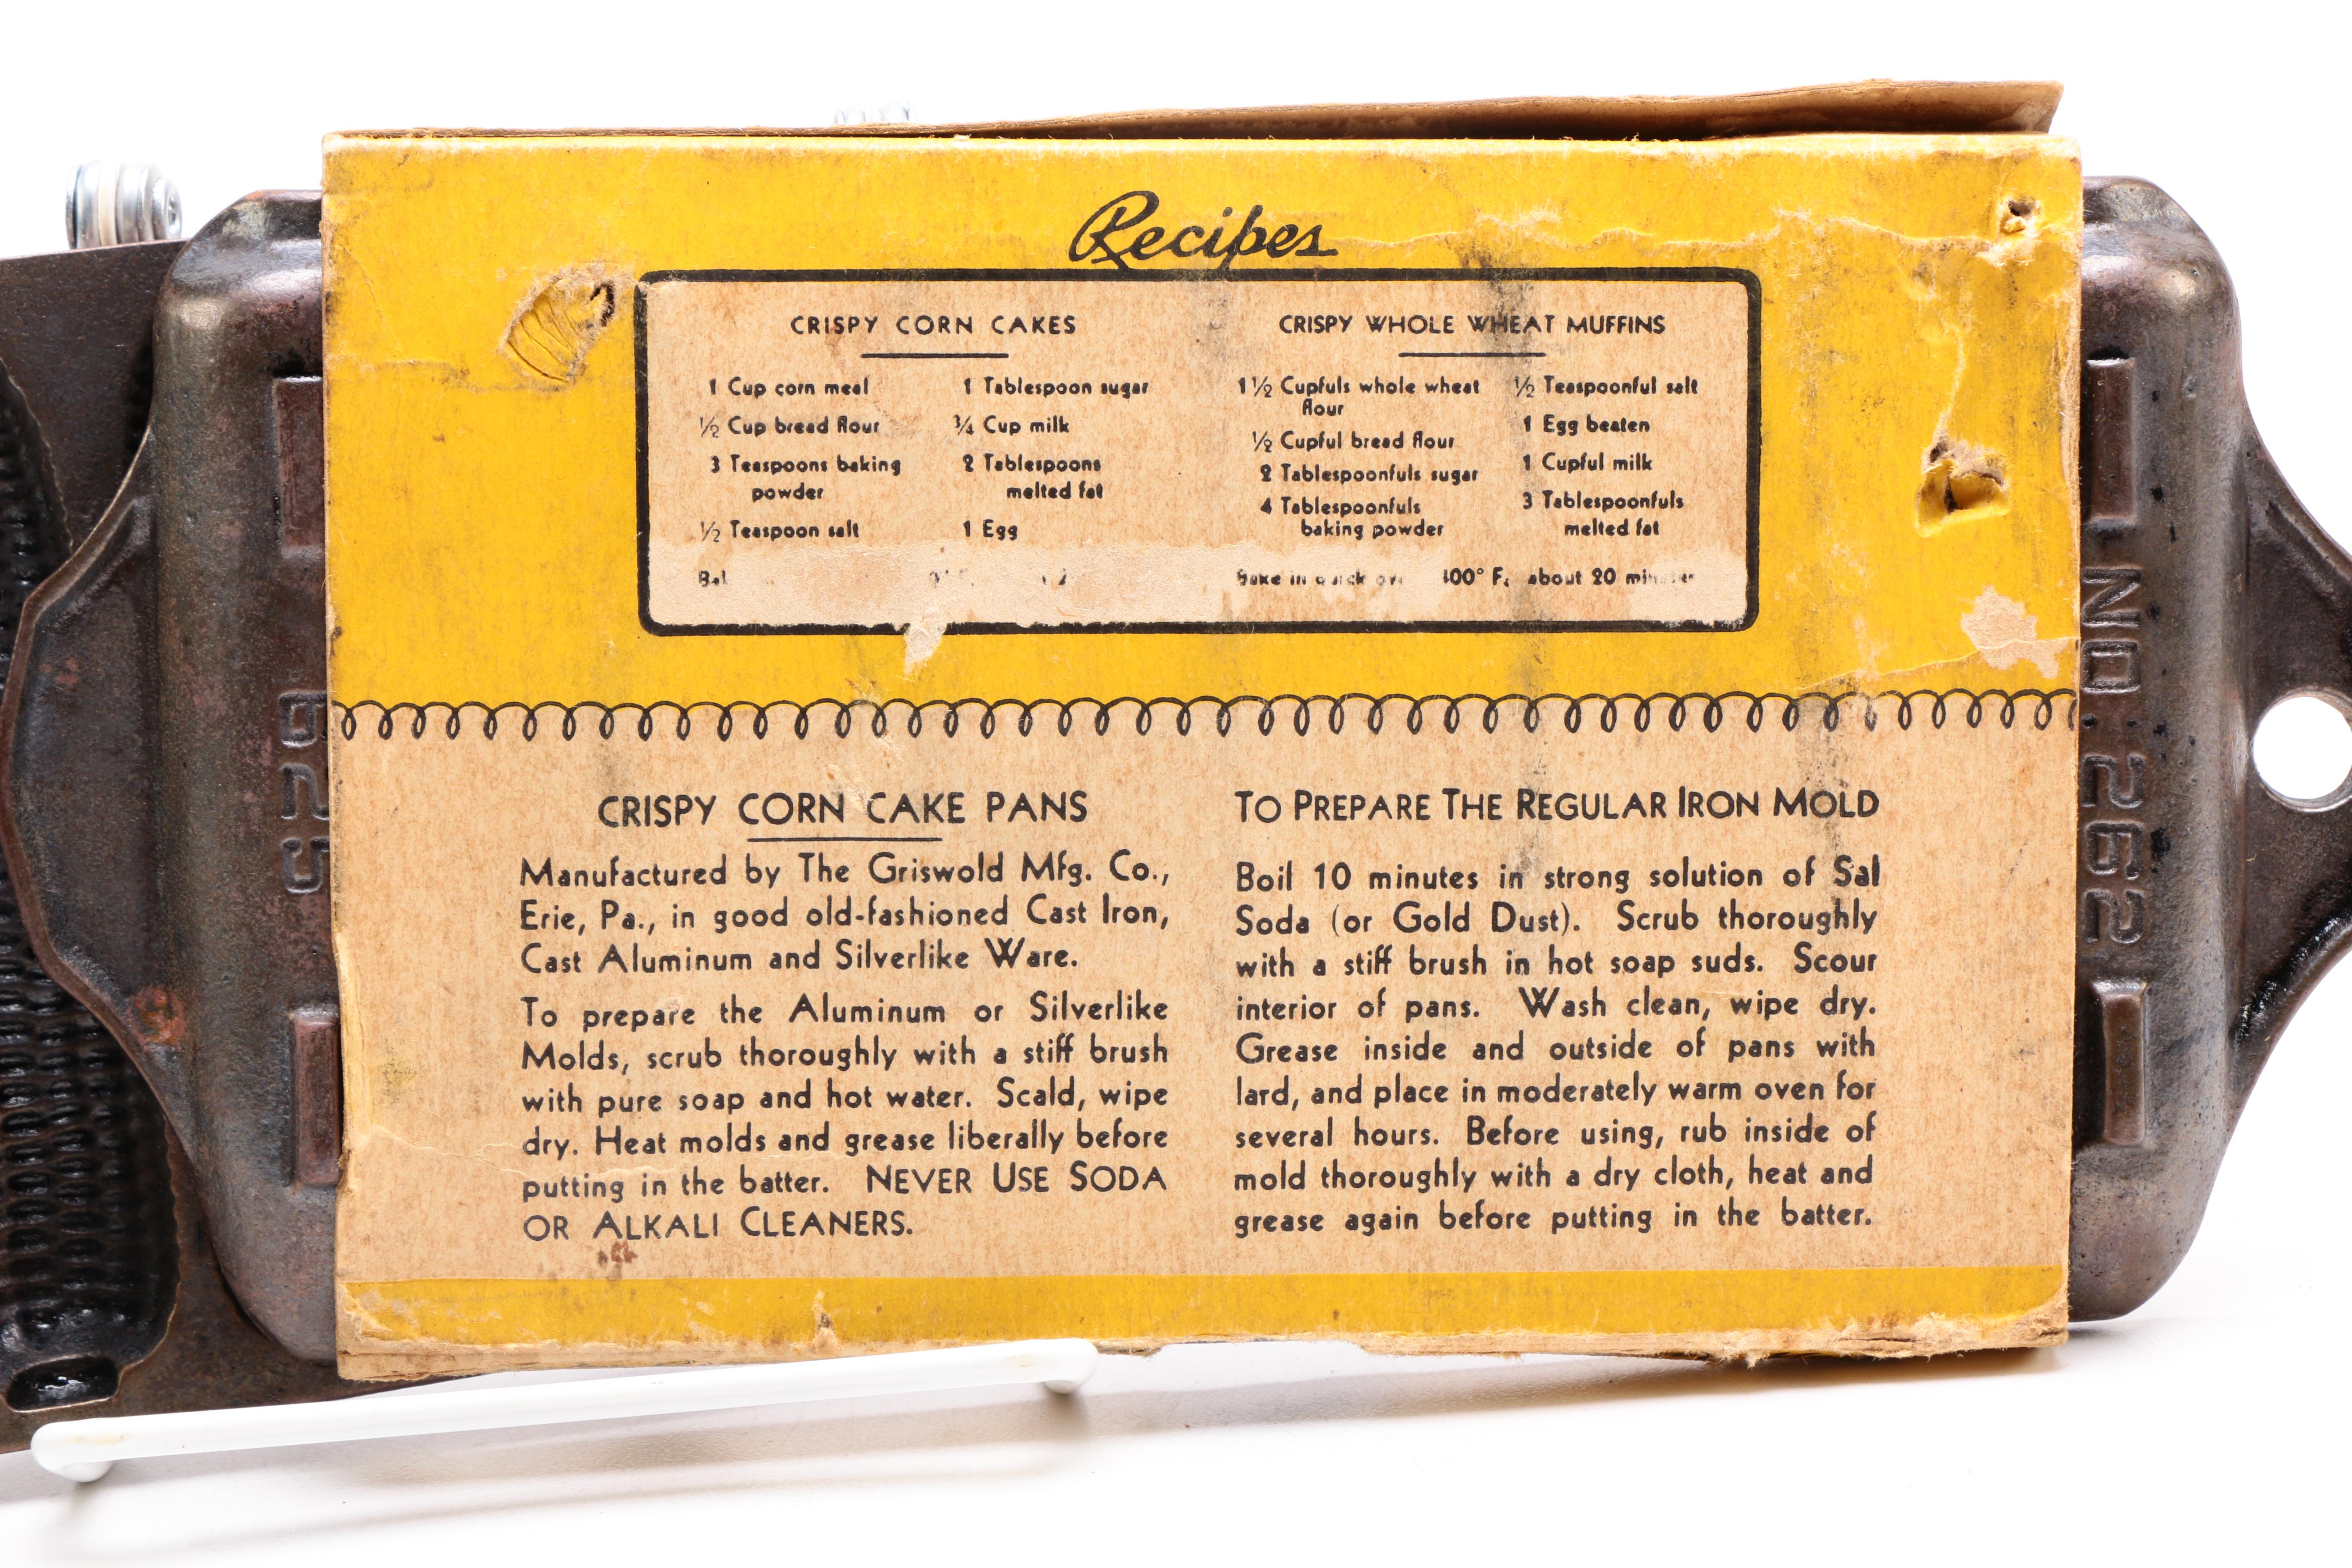 Recipes
CRISPY CORN CAKES
1 Cup corn meal
½ Cup bread flour
3 Teaspoons baking
powder
½ Teaspoon salt
1 Tablespoon sugar
¾ Cup milk
2 Tablespoons
melted fat
1 Egg
CRISPY WHOLE WHEAT MUFFINS
1½ Cupfuls whole wheat
flour
½ Cupful bread flour
2 Tablespoonfuls sugar
4 Tablespoonfuls
baking powder
½ Teaspoonful salt
1 Egg beaten
1 Cupful milk
3 Tablespoonfuls
melted fat
Bake in quick F. about 20
CRISPY CORN CAKE PANS
Manufactured by The Griswold Mfg. Co.,
Erie, Pa., in good old-fashioned Cast Iron,
Cast Aluminum and Silverlike Ware.
To prepare the Aluminum or Silverlike
Molds, scrub thoroughly with a stiff brush
with pure soap and hot water. Scald, wipe
dry. Heat molds and grease liberally before
putting in the batter. NEVER USE SODA
OR ALKALI CLEANERS.
TO PREPARE THE REGULAR IRON MOLD
Boil 10 minutes in strong solution of Sal
Soda (or Gold Dust). Scrub thoroughly
with a stiff brush in hot soap suds. Scour
interior of pans. Wash clean, wipe dry.
Grease inside and outside of pans with
lard, and place in moderately warm oven for
several hours. Before using, rub inside of
mold thoroughly with a dry cloth, heat and
grease again before putting in the batter.
925
NO. 262